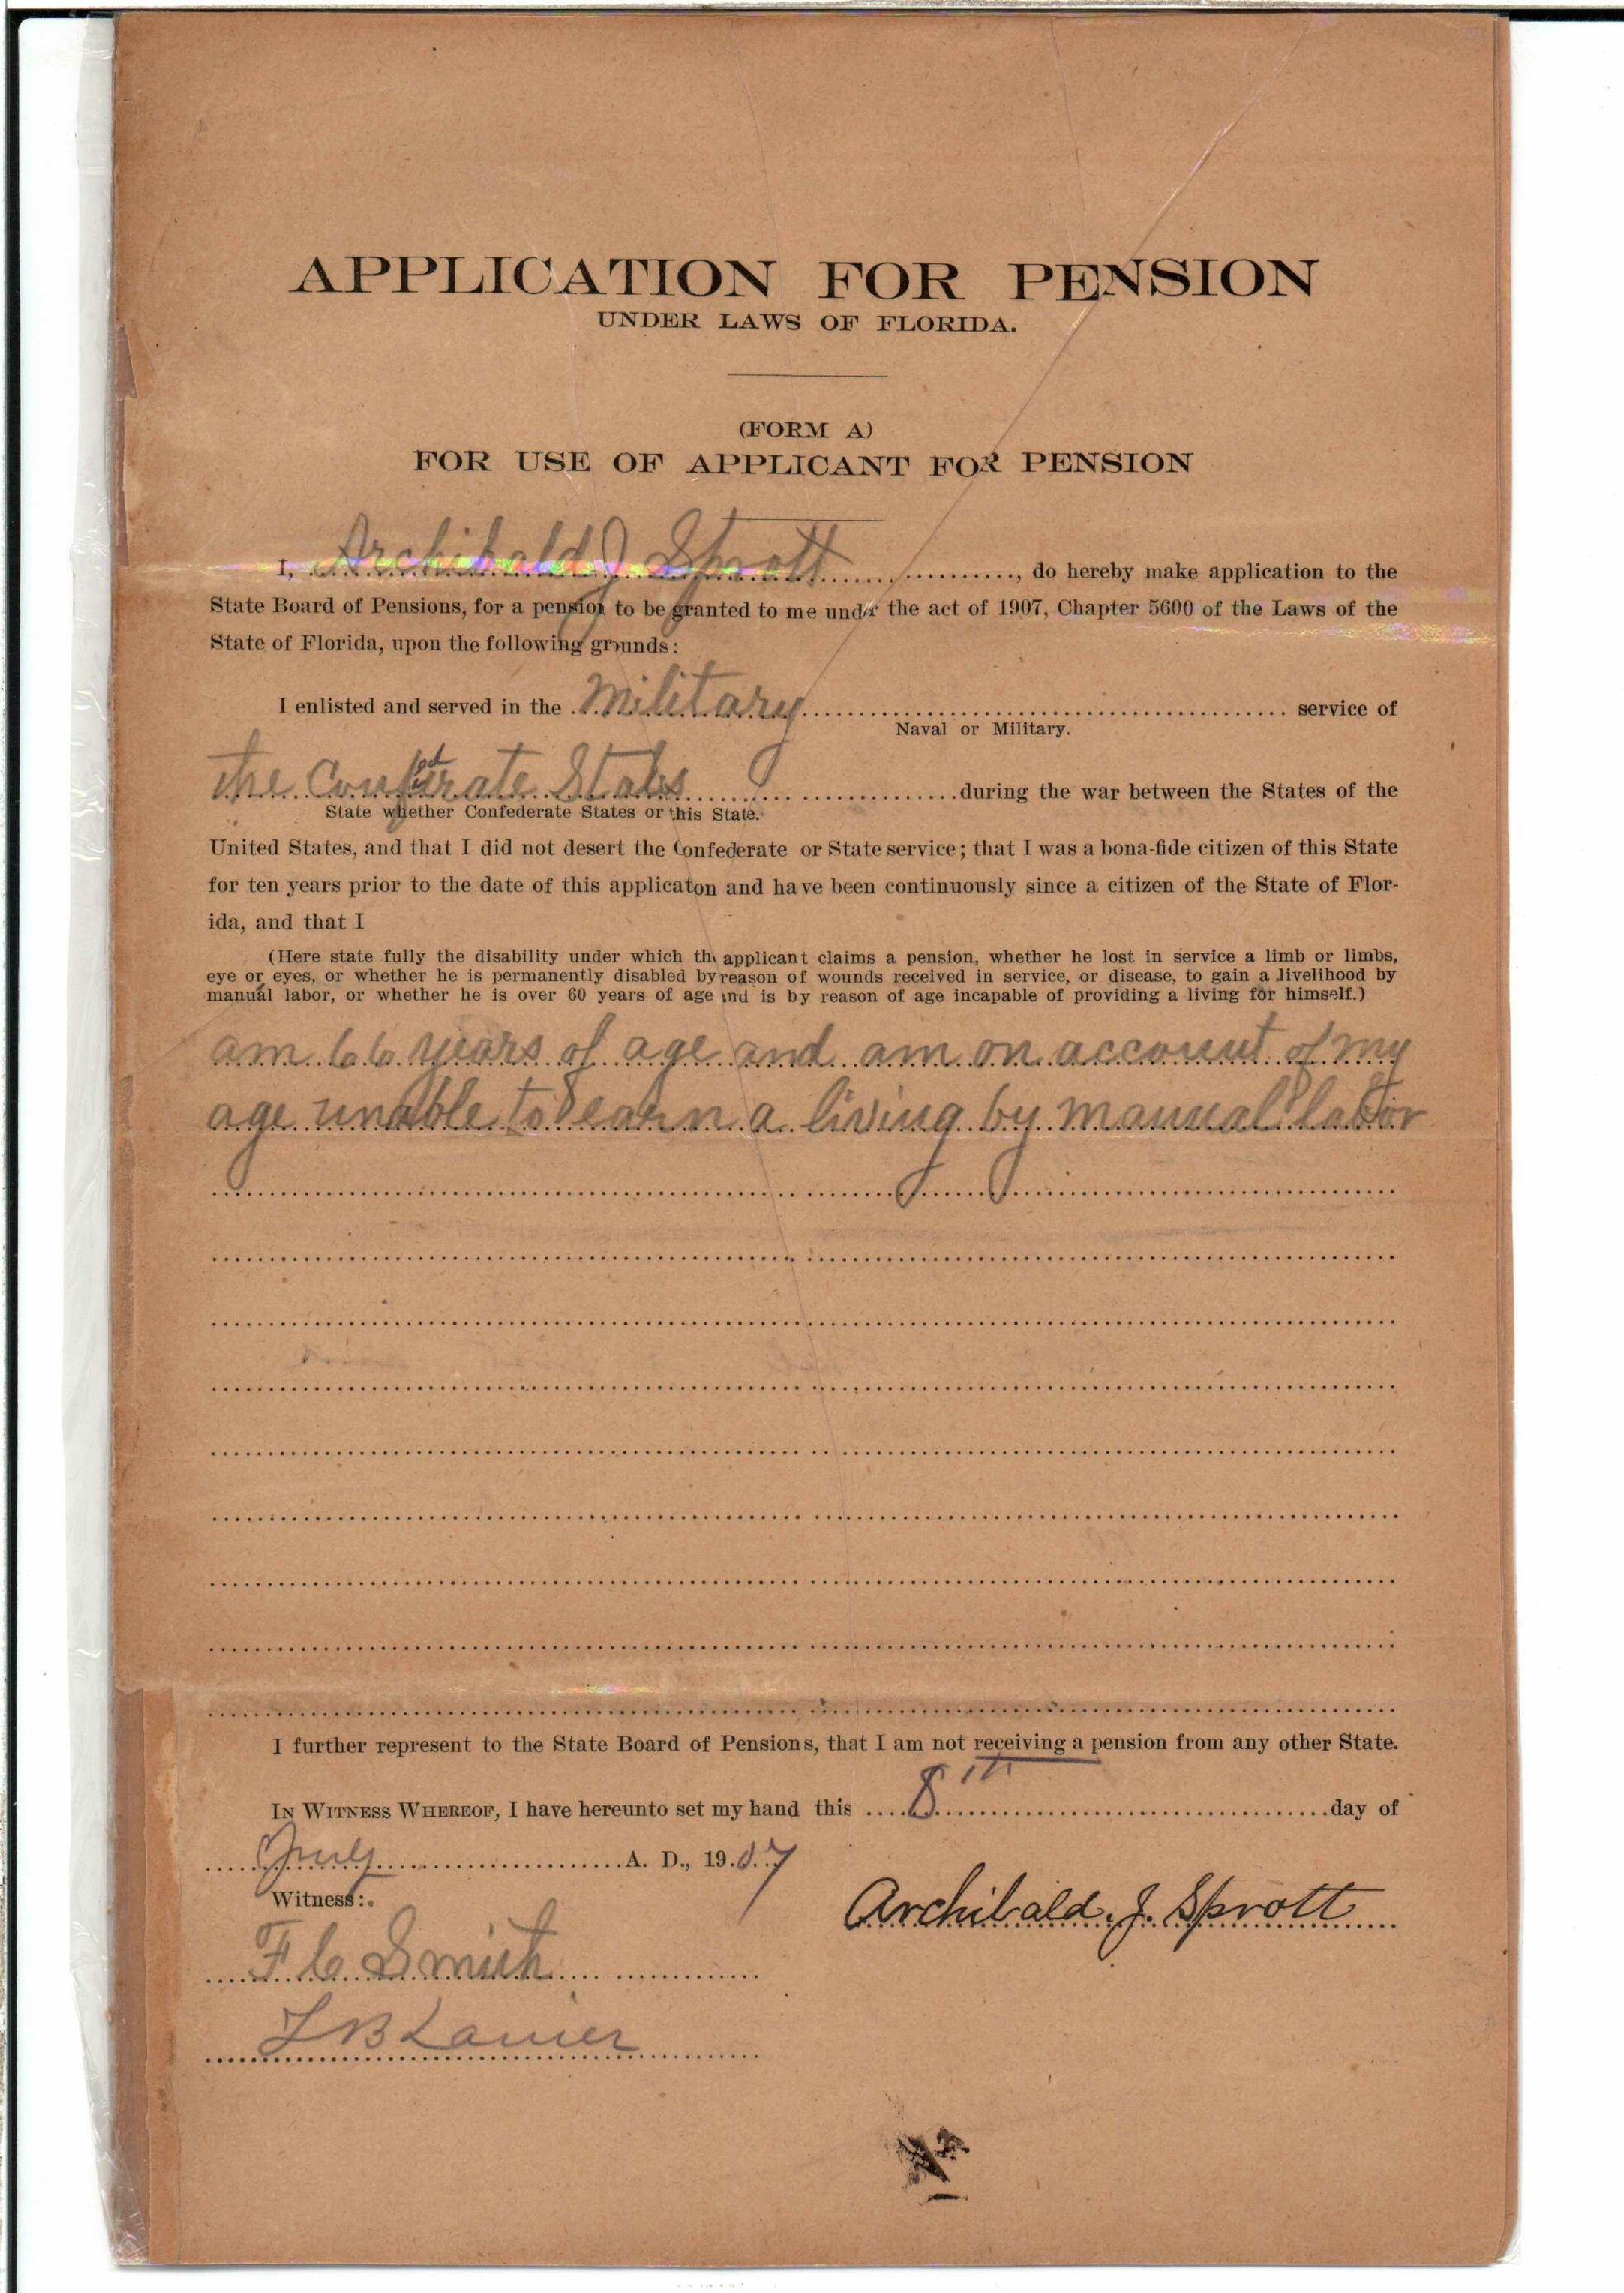 APPLICATION FOR PENSION
UNDER LAWS OF FLORIDA.
(FORM A)
FOR USE OF APPLICANT FOR PENSION
I, Archibald J Sprott, do hereby make application to the
State Board of Pensions, for a pension to be granted to me under the act of 1907, Chapter 5600 of the Laws of the
State of Florida, upon the following grounds:
I enlisted and served in the Military service of
Naval or Military.
the Confederate States during the war between the States of the
State whether Confederate States or this State.
United States, and that I did not desert the Confederate or State service; that I was a bona-fide citizen of this State
for ten years prior to the date of this applicaton and have been continuously since a citizen of the State of Flor-
ida, and that I
(Here state fully the disability under which the applicant claims a pension, whether he lost in service a limb or limbs,
eye or eyes, or whether he is permanently disabled by reason of wounds received in service, or disease, to gain a livelihood by
manual labor, or whether he is over 60 years of age and is by reason of age incapable of providing a living for himself.)
am 66 years of age and am on account of my
age unable to earn a living by manual labor
I further represent to the State Board of Pensions, that I am not receiving a pension from any other State.
IN WITNESS WHEREOF, I have hereunto set my hand this 8th day of
July A. D., 1907
Witness:
Archibald. J. Sprott
F C Smith
L B Lanier